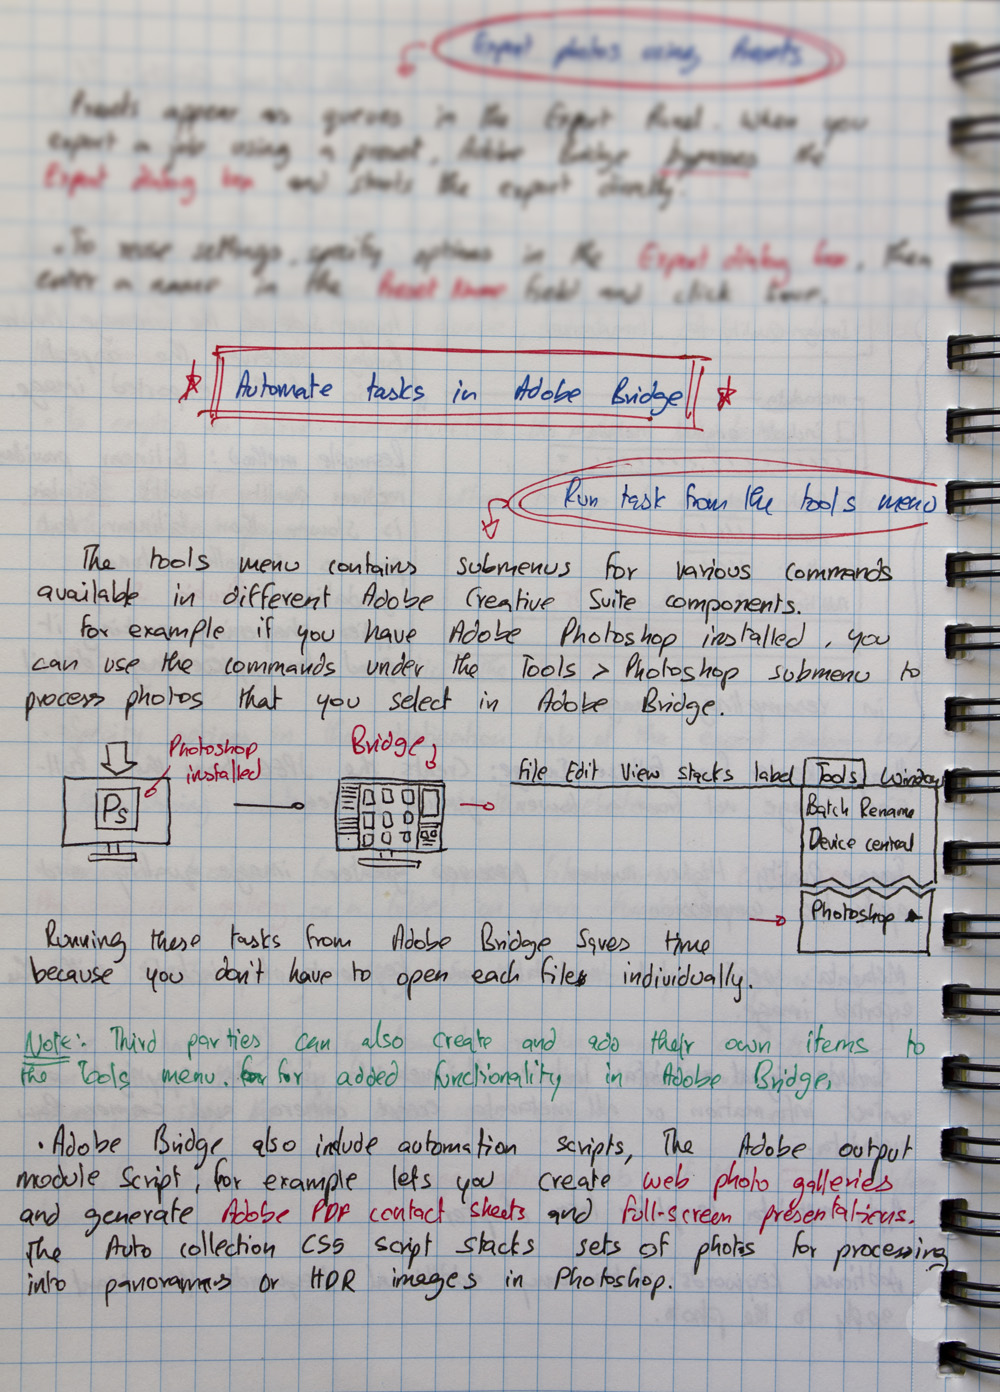 Export photos using Presets
Presets appear as queues in the Export Panel. When you
export a job using a preset, Adobe Bridge bypasses the
Export dialog box and starts the export directly.
.To reuse settings, specify options in the Export dialog box, then
enter a name in the Preset Name field and click Save.
Automate tasks in Adobe Bridge
Run task from the tools menu
The tools menu contains submenus for various commands
available in different Adobe Creative Suite components.
For example if you have Adobe Photoshop installed, you
can use the commands under the Tools > Photoshop submenu to
process photos that you select in Adobe Bridge.
Photoshop
installed
Ps
Bridge
File Edit View stacks label Tools Window
Batch Rename
Device central
Photoshop
Running these tasks from Adobe Bridge saves time
because you don't have to open each files individually.
Note: Third parties can also create and add their own items to
the Tools menu. for for added functionality in Adobe Bridge,
. Adobe Bridge also include automation scripts, The Adobe output
module Script, for example lets you create web photo galleries
and generate Adobe PDF contact sheets and full-screen presentations.
The Auto collection CS5 script stacks sets of photos for processing
into panoramas or HDR images in Photoshop.